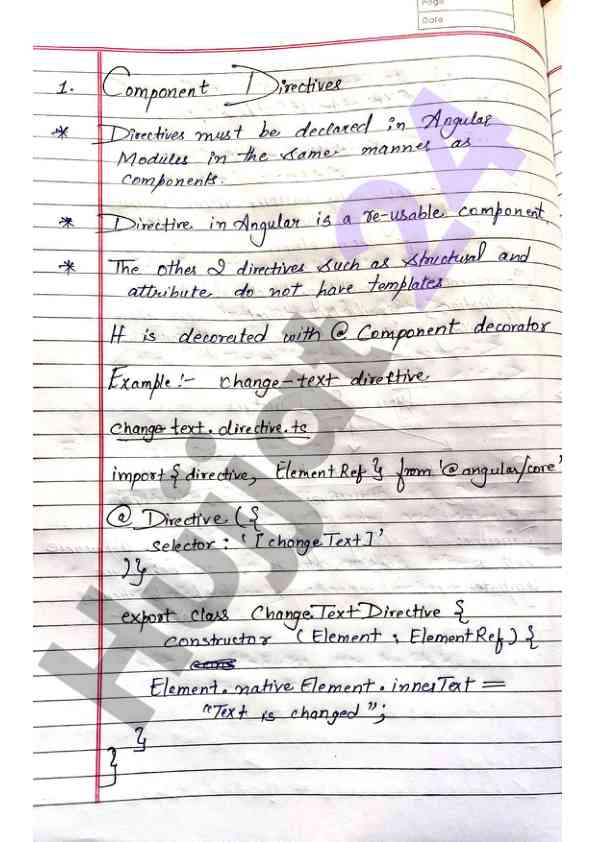 Page
Date
1. Component Directives
* Directives must be declared in Angular
Modules in the same manner as
components.
* Directive in Angular is a re-usable component.
* The other 2 directives such as structural and
attribute do not have templates
It is decorated with @ Component decorator
Example :- change-text directive.
change-text.directive.ts
import { directive, ElementRef } from '@angular/core'
@ Directive ({
selector : '[changeText]'
)}
export class ChangeTextDirective {
constructor (Element : ElementRef) {
Element.nativeElement.innerText =
"Text is changed";
}
}
Hujjat 24